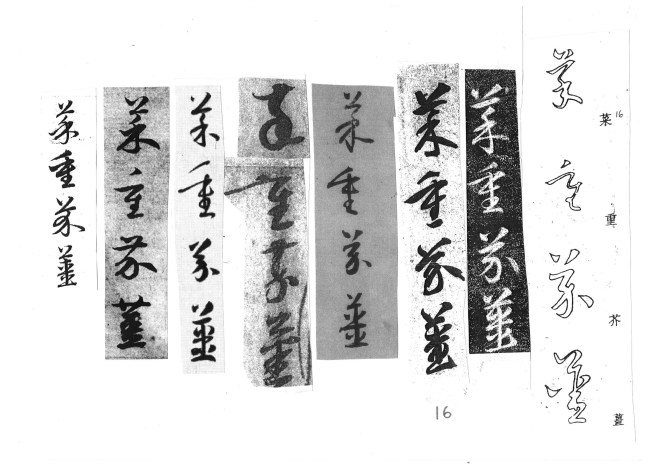 菜16 重 芥 薑
菜重芥薑
菜重芥薑
菜重芥薑
菜重芥薑
菜重芥薑
菜重芥薑
菜重芥薑
菜重芥薑
16